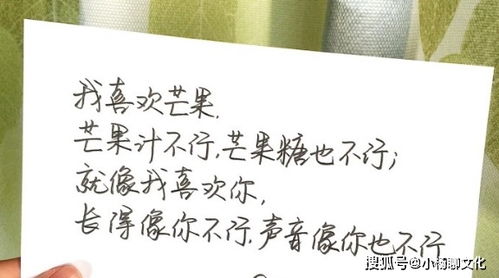 我喜欢芒果，
芒果汁不行，芒果糖也不行；
就像我喜欢你，
长得像你不行，声音像你也不行
搜狐号@小杨聊文化